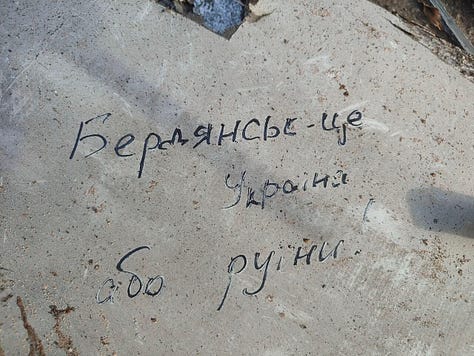 Бердянськ-це
Україна,
або руїни.